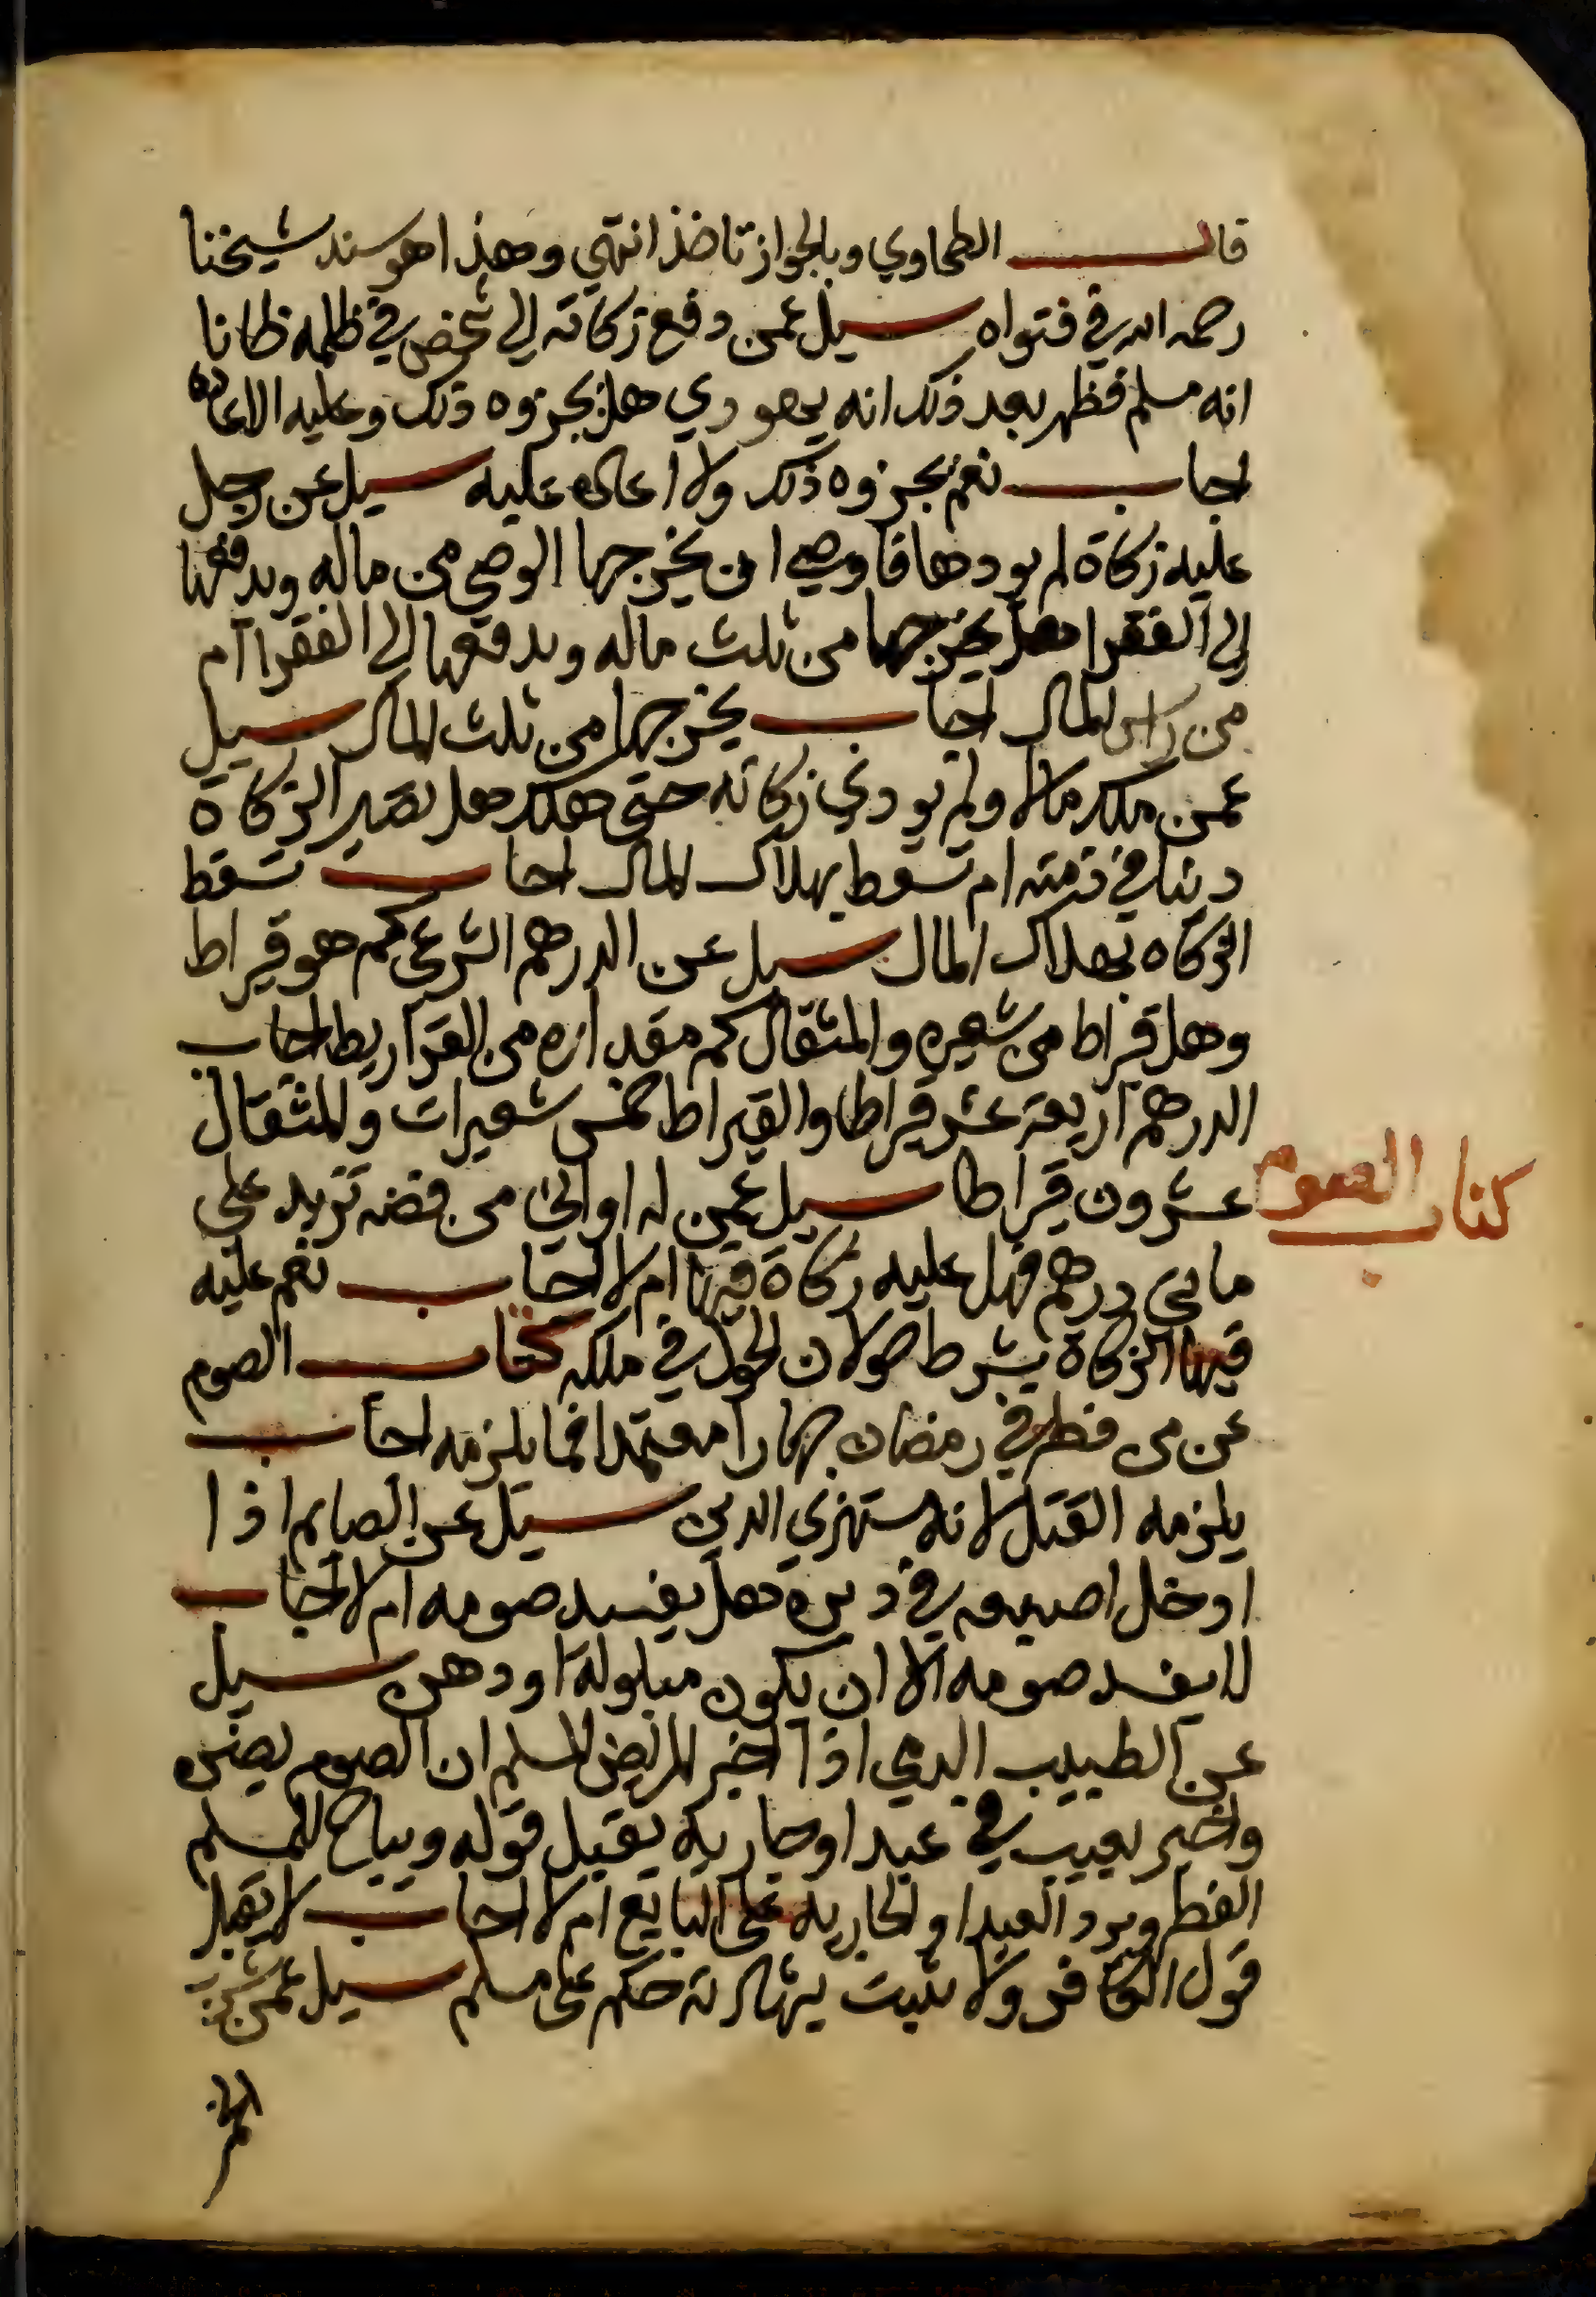 قال الطحاوي وبالجواز تاخذ انتهي وهذا هو سند شيخنا
رحمه الله في فتواه سيل عمن دفع زكاته الي شخص في ظلمه ظانا
انه مسلم فظهر بعد ذلك انه يهودي هل يجزوه ذلك وعليه الاعاده
اجاب نعم يجزوه ذلك ولا اعاده عليه سيل عن رجل
عليه زكاة لم يودها فاوصي ان يخرجها الوصي من ماله ويدفعها
الي الفقرا هل يخرجها من ثلث ماله ويدفعها الي الفقرا ام
من راس المال اجاب يخرجها من ثلث المال سيل
عمن ملك مالا ولم يودي زكاته حتي هلك هل تصير الزكاة
دينا في ذمته ام تسقط بهلاك المال اجاب تسقط
الزكاه بهلاك المال سيل عن الدرهم الشرعي كم هو قيراط
وهل قيراط من شعيره والمثقال كم مقداره من القراريط اجاب
الدرهم اربعة عشر قيراطا والقيراط خمس شعيرات والمثقال
عشرون قيراطا سيل عمن له اواني من فضه تزيد علي
مايتي درهم فهل عليه زكاة فيها ام لا اجاب نعم عليه
فيها الزكاة بشرط حولان الحول في ملكه كتاب الصوم
كتاب الصوم
عن من فطر في رمضان جهارا معتمدا فما يلزمه اجاب
يلزمه القتل لانه يستهزي الدين سيل عن الصايم اذا
ادخل اصبعه في دبره هل يفسد صومه ام لا اجاب
لا يفسد صومه الا ان يكون مبلولة او دهن سيل
عن الطبيب الدمي اذا اخبر المريض المسلم ان الصوم يضره
واخبر بعيب في عبد او جاريه يقبل قوله ويباح للمسلم
الفطر ويرد العبد او الجاريه علي البايع ام لا اجاب لا يقبل
قول الكافر ولا يثبت بشهادته حكم علي مسلم سيل عمن شرب
الخمر